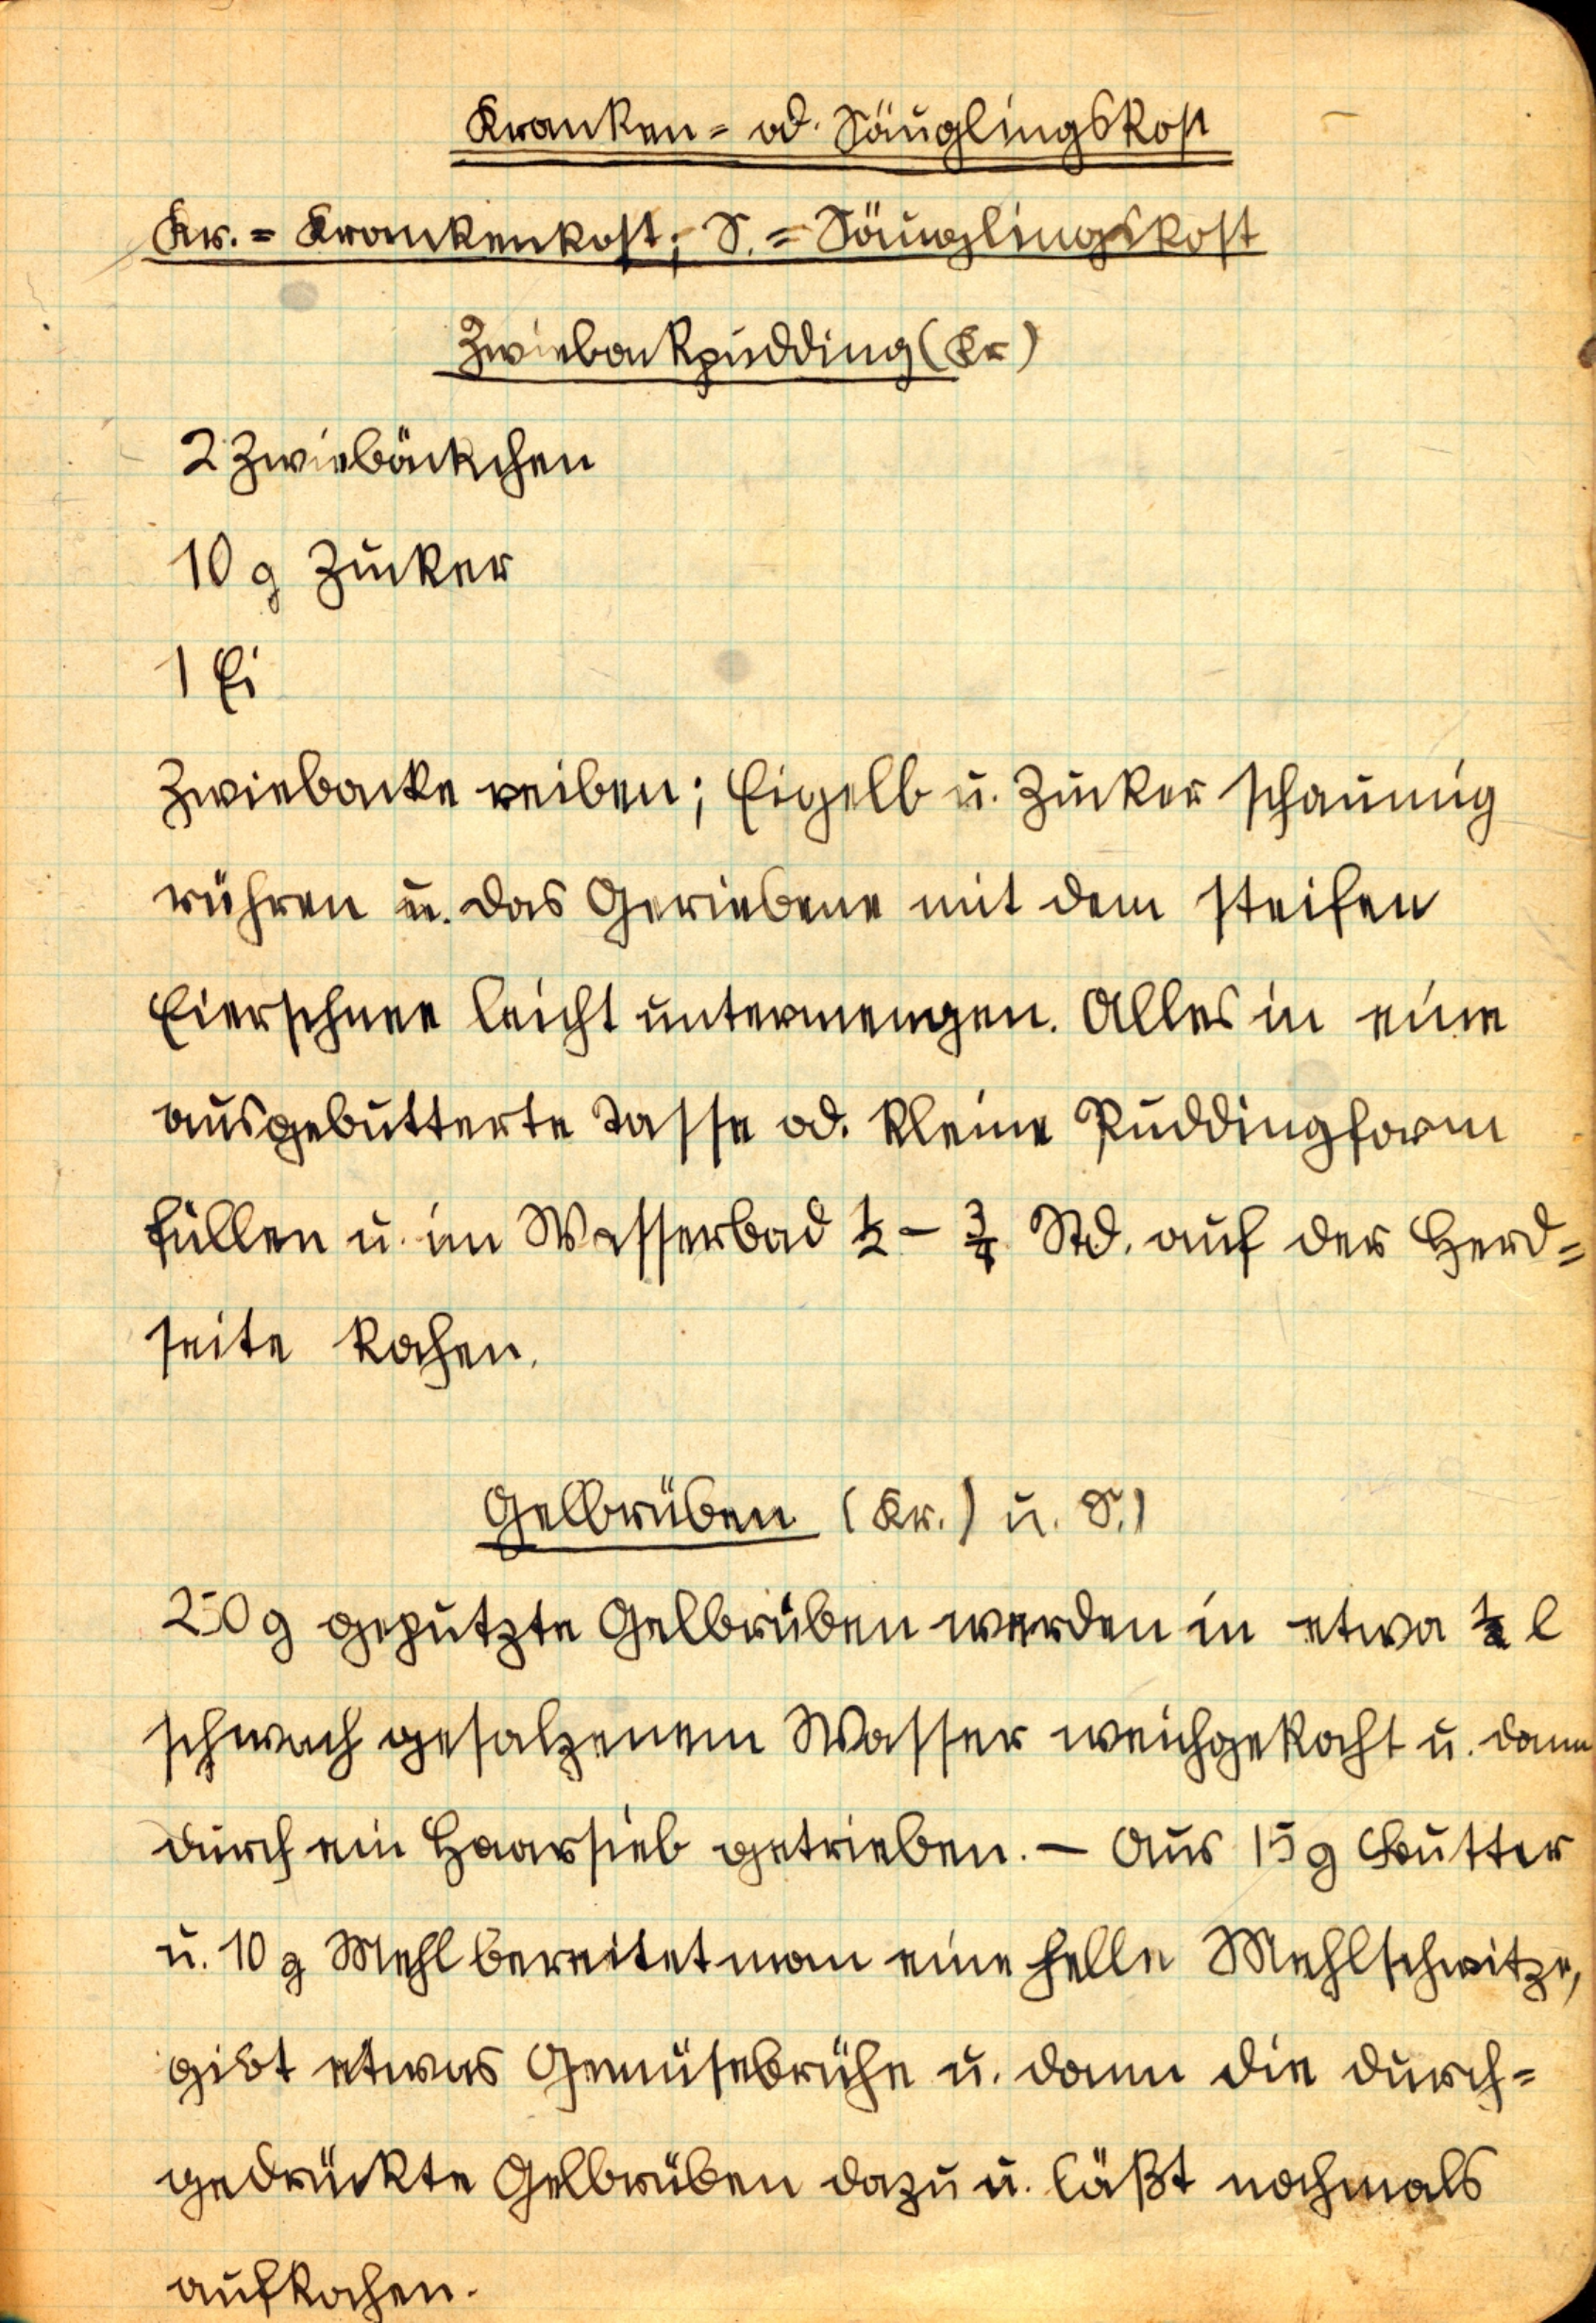 Kranken- od. Säuglingskost
Kr. = Krankenkost; S. = Säuglingskost
Zwiebackpudding (Kr)
2 Zwiebäckchen
10 g Zucker
1 Ei
Zwiebacke reiben; Eigelb u. Zucker schaumig
rühren u. das Geriebene mit dem steifen
Eierschnee leicht untermengen. Alles in eine
ausgebutterte Tasse od. kleine Puddingform
füllen u. im Wasserbad ½ - ¾ Std. auf der Herd-
seite kochen.
Gelbrüben (Kr.) u. S.)
250 g geputzte Gelbrüben werden in etwa ½ l
schwach gesalzenem Wasser weichgekocht u. dann
durch ein Haarsieb getrieben. – Aus 15 g Butter
u. 10 g Mehl bereitet man eine helle Mehlschwitze,
gibt etwas Gemüsebrühe u. dann die durch-
gedrückte Gelbrüben dazu u. läßt nochmals
aufkochen.